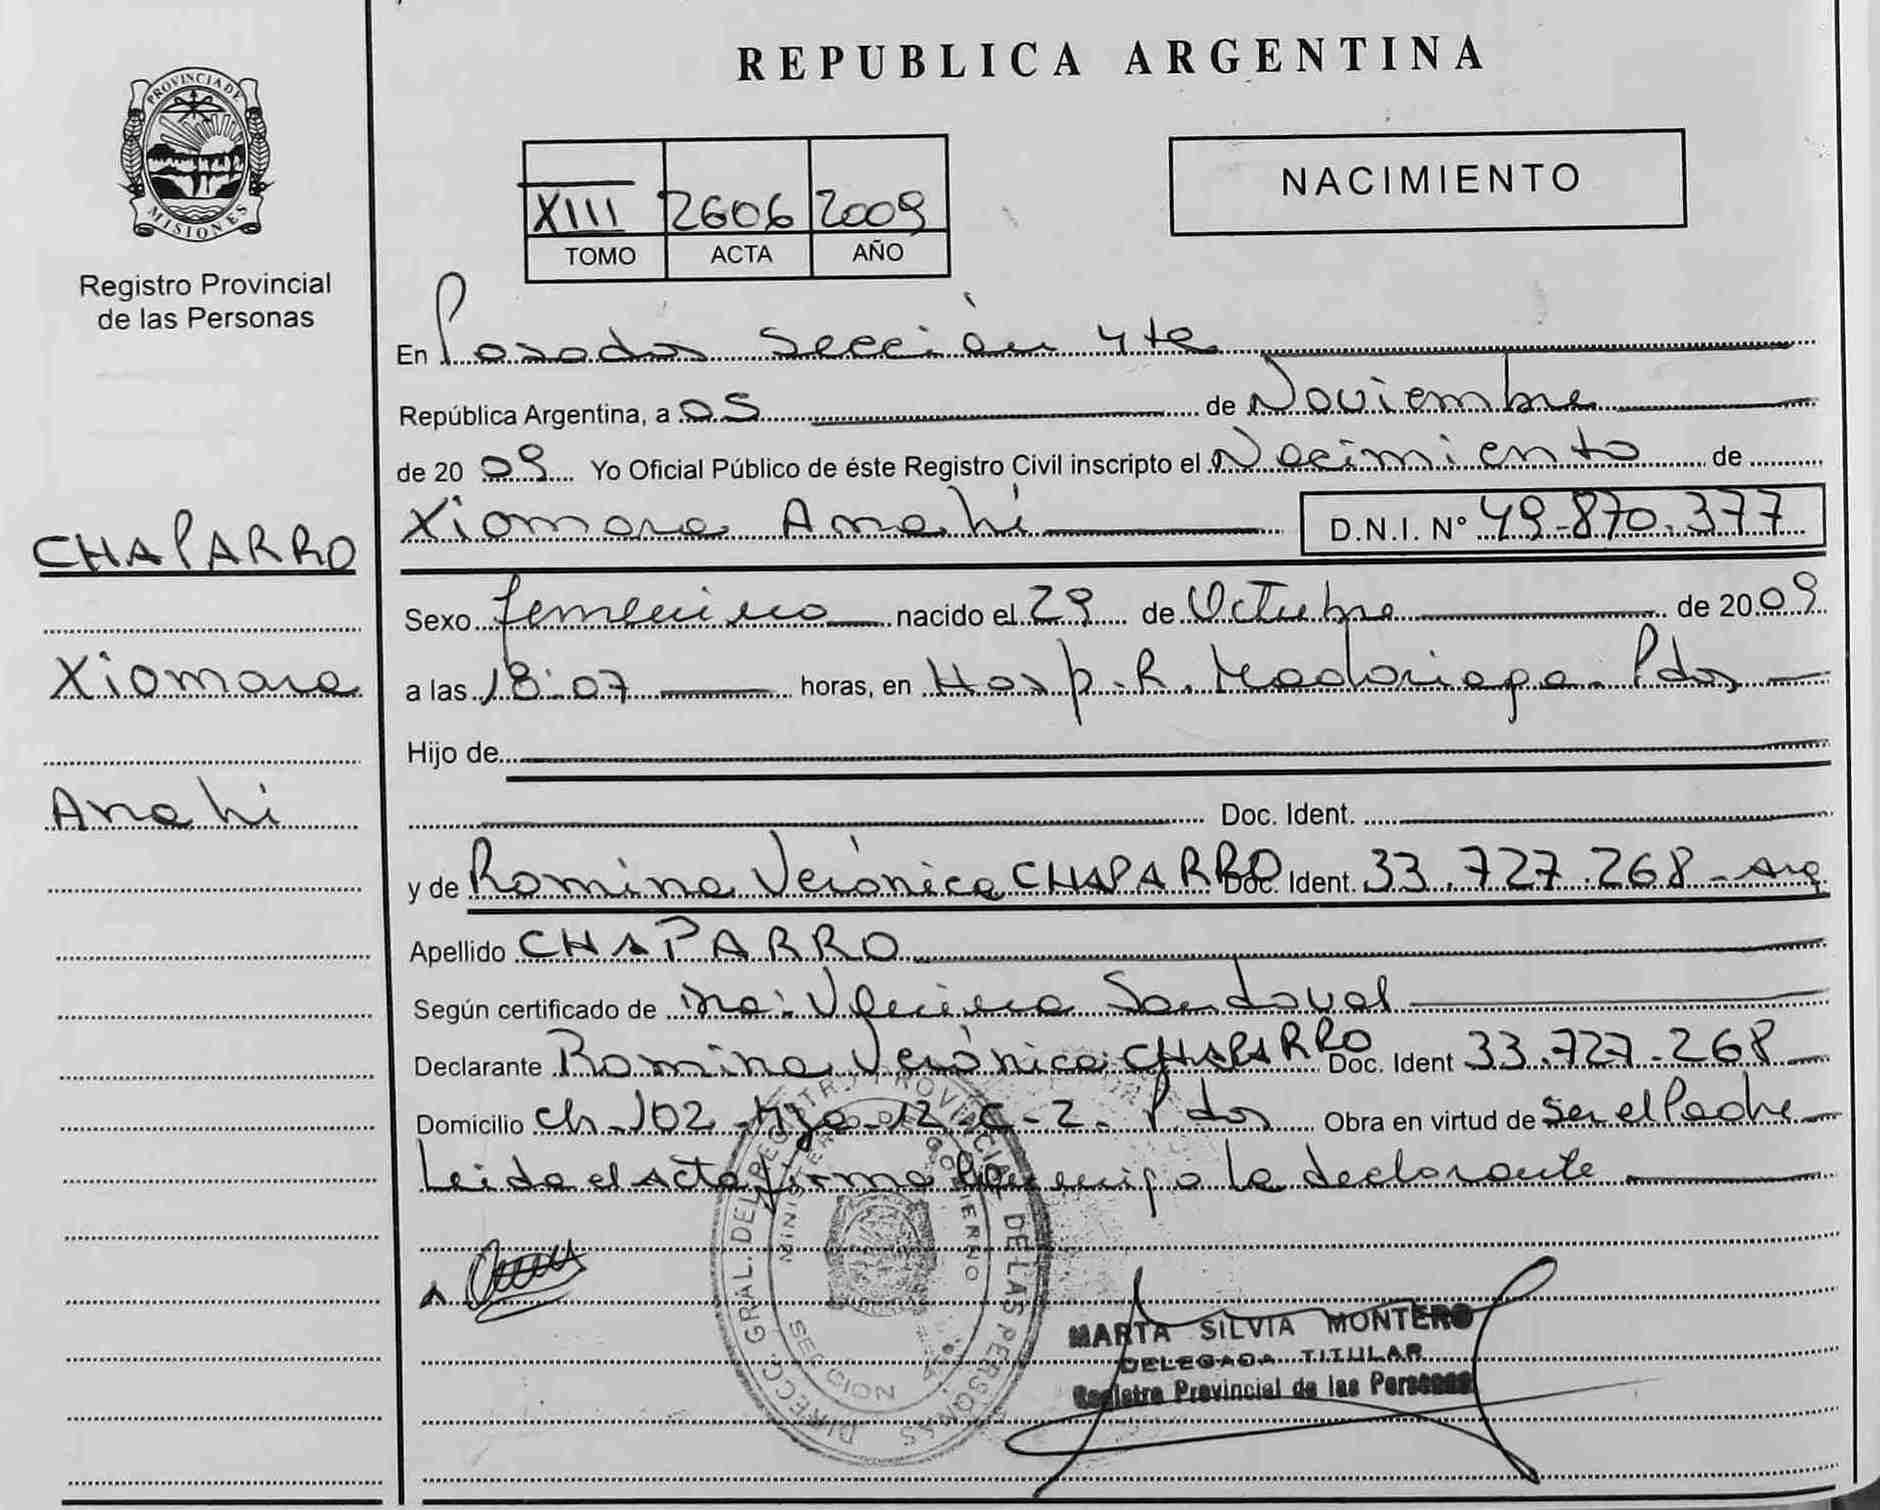 PROVINCIA DE
MISIONES
Registro Provincial
de las Personas
CHAPARRO
Xiomara
Anahi
REPUBLICA ARGENTINA
XIII 2606 2009
TOMO ACTA AÑO
NACIMIENTO
En Posadas Sección 4ta
República Argentina, a 05 de Noviembre
de 20 09 Yo Oficial Público de éste Registro Civil inscripto el Nacimiento de
Xiomara Anahi D.N.I. N° 49.870.377
Sexo femenino nacido el 29 de Octubre de 2009
a las 18:07 horas, en Hosp. R. Madariaga. Pdas
Hijo de
Doc. Ident.
y de Romina Verónica CHAPARRO Doc. Ident. 33.727.268 - Arg
Apellido CHAPARRO
Según certificado de Sandoval
Declarante Romina Verónica CHAPARRO Doc. Ident 33.727.268
Domicilio Ch. 102 - Mza - 12 - C - 2 - Pdas Obra en virtud de Ser el Padre
Leida el Acta firma conmigo la declarante
DIRECC. GRAL. DEL REGISTRO PROVINCIAL DE LAS PERSONAS
MINISTERIO DE GOBIERNO
SECCION 4
MARTA SILVIA MONTERO
DELEGADA TITULAR
Registro Provincial de las Personas